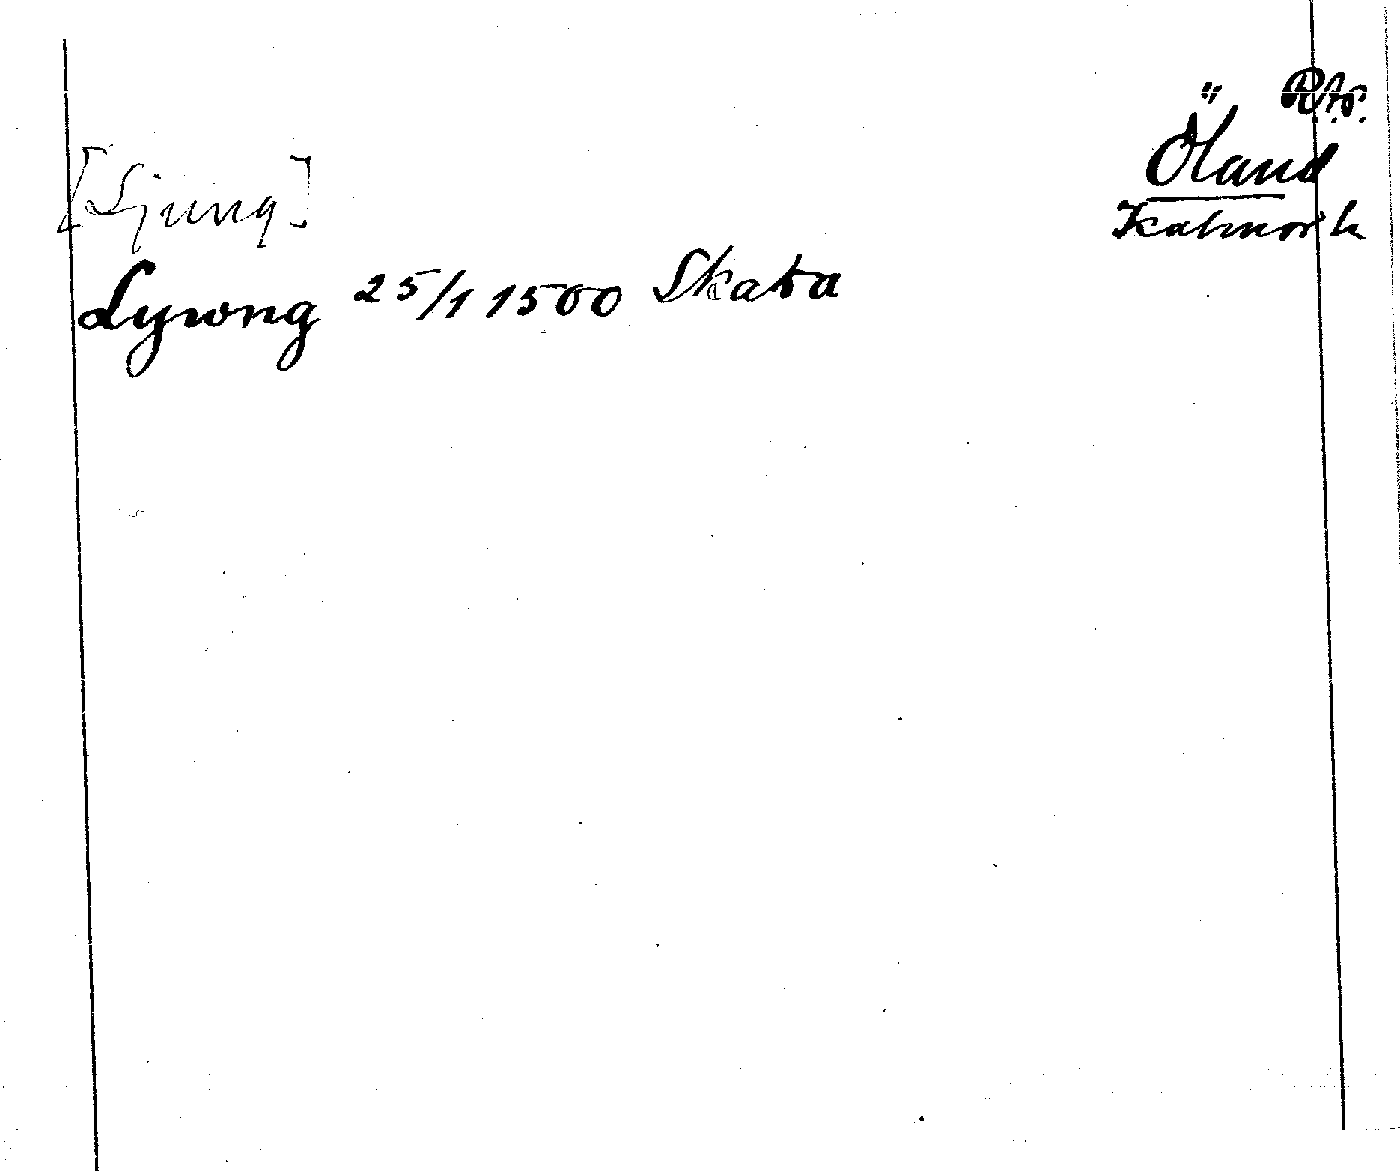 RAp.
Öland
[Ljung]
Kalmar h
Lywng 25/1 1500 Skata